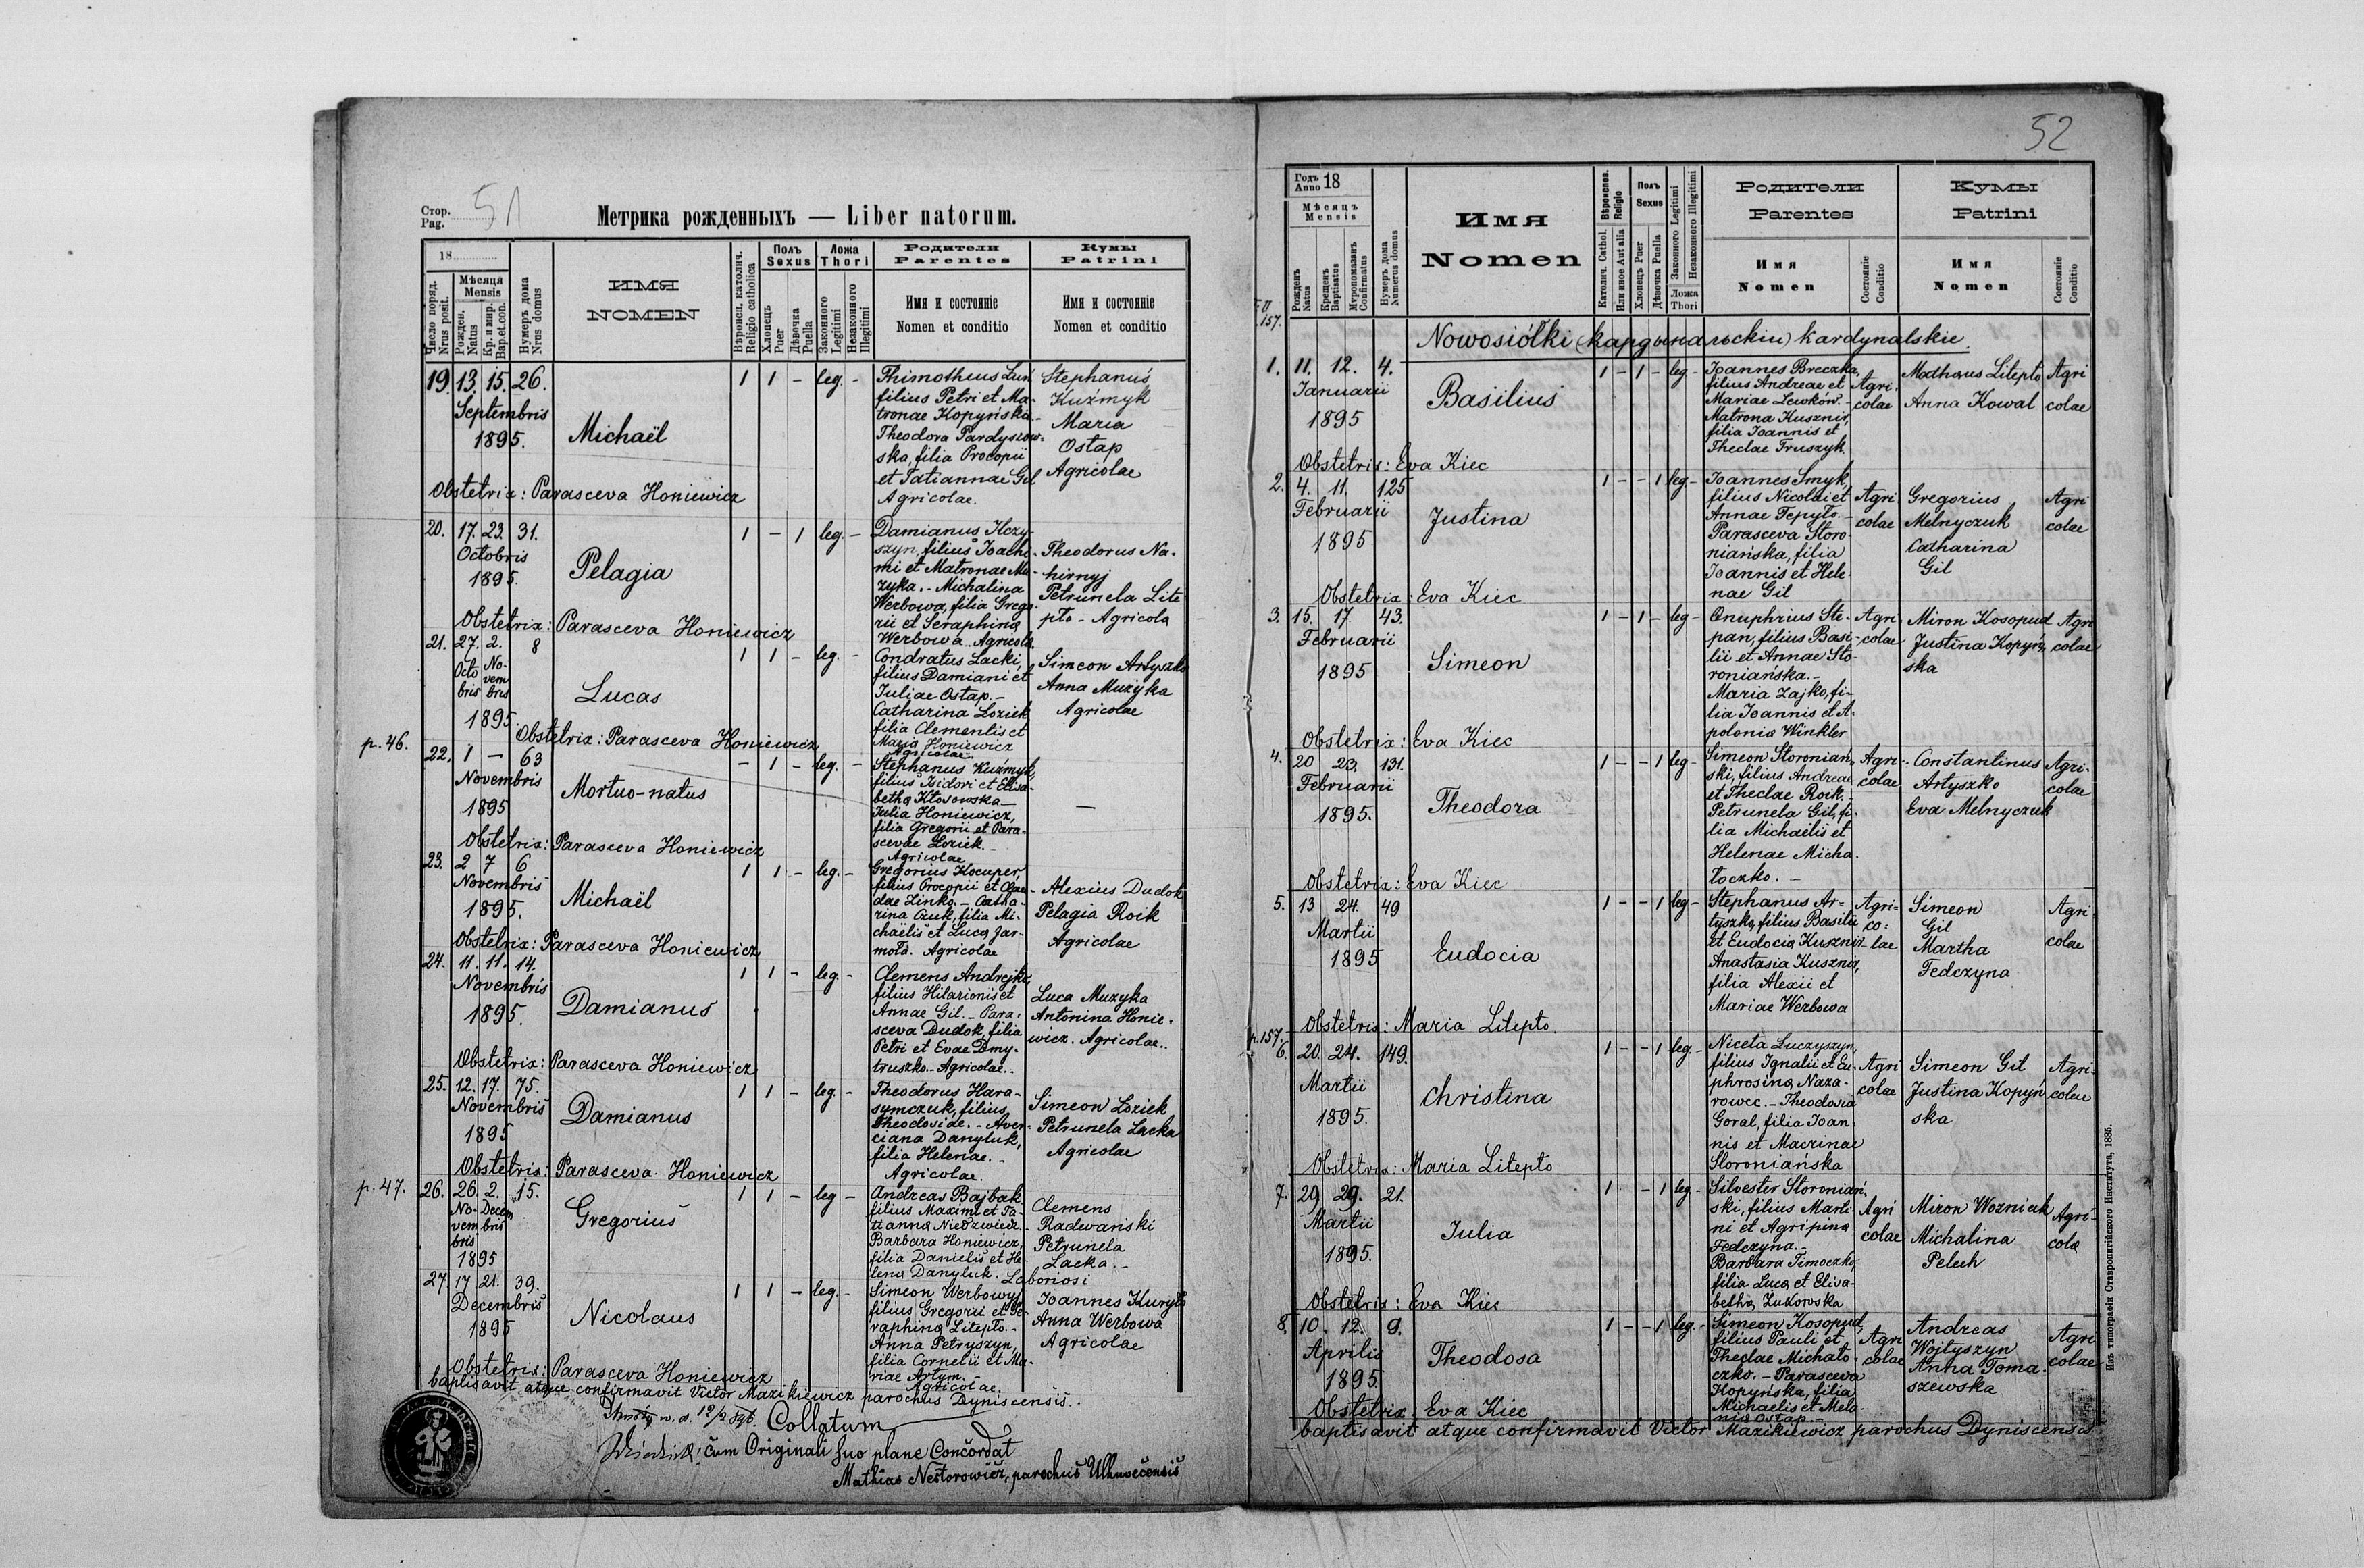 51
Стор.
Pag.
Метрика рожденныхъ — Liber natorum.
18
Число поряд.
Nrus posit.
Мѣсяця
Mensis
Рожден.
Natus
Кр. и мир.
Bap. et con.
Нумеръ дома
Nrus domus
ИМЯ
NOMEN
Вѣроисп. католич.
Religio catholica
Полъ
Sexus
Хлопецъ
Puer
Дѣвочка
Puella
Ложа
Thori
Законного
Legitimi
Незаконного
Illegitimi
Родители
Parentes
Имя и состояніе
Nomen et conditio
Кумы
Patrini
Имя и состояніе
Nomen et conditio
19. 13. 15. 26.
Septembris
1895.
Michaël
1 1 - leg. -
Thimotheus Lun
filius Petri et Ma-
tronae Kopyńska.-
Theodora Pardyszow-
ska, filia Procopii
et Tatiannae Gil
Agricolae.
Stephanus
Kuźmyk
Maria
Ostap
Agricolae
Obstetrix: Parasceva Honiewicz
20. 17. 23. 31.
Octobris
1895.
Pelagia
1 - 1 leg. -
Damianus
szyn, filius Joachi-
mi et Matronae Mu-
zyka. - Michalina
Werbowa, filia Grego-
rii et Seraphina
Werbowa. Agricolae.
Theodorus Na-
hirnyj
Petrunela Lite
pło - Agricola
Obstetrix: Parasceva Honiewicz
21. 27. 2. 8
Octo No-
bris vem
bris
1895.
Lucas
1 1 - leg. -
Condratus Lacki,
filius Damiani et
Juliae Ostap. -
Catharina Loziek
filia Clementis et
Maria Honiewicz
Agricolae.
Simeon Artyszko
Anna Muzyka
Agricolae
Obstetrix: Parasceva Honiewicz
p. 46.
22. 1 - 63
Novembris
1895
Mortuo-natus
- 1 - leg. -
Stephanus Kuźmyk,
filius Isidori et Elisa-
betha Kłosowska -
Julia Honiewicz,
filia Gregorii et Para-
scevae Loziek. -
Agricolae
-
Obstetrix: Parasceva Honiewicz
23. 2 7 6
Novembris
1895.
Michaël
1 1 - leg. -
Gregorius Kocuper,
filius Procopii et
dae Linko. - Catha-
rina filia Mi-
chaëlis et Luca Jar-
mola. Agricolae
Alexius Dudok
Pelagia Roik
Agricolae
Obstetrix: Parasceva Honiewicz
24. 11. 11. 14.
Novembris
1895.
Damianus
1 1 - leg. -
Clemens Andrejko
filius Hilarionis et
Annae Gil. - Para-
sceva Dudok, filia
Petri et Evae Dmy-
truszko. - Agricolae. -
Luca Muzyka
Antonina Honie-
wicz. Agricolae..
Obstetrix: Parasceva Honiewicz
25. 12. 17. 75.
Novembris
1895
Damianus
1 1 - leg. -
Theodorus Hara-
symczuk, filius
Theodosiae. - Aver-
ciana Danyluk,
filia Helenae. -
Agricolae.
Simeon Loziek
Petrunela Lacka
Agricolae
Obstetrix: Parasceva Honiewicz
p. 47.
26. 26. 2. 15.
No- Decem
vem bris
bris
1895
Gregorius
1 1 - leg -
Andreas Bajbak
filius Maximi et Ta-
tianna Niedzwiedz.
Barbara Honiewicz,
filia Danielis et He-
lena Danyluk. Laboriosi
Clemens
Radevański
Petrunela
Lacka. -
27. 17 21. 39.
Decembris
1895
Nicolaus
1 1 - leg. -
Simeon Werbowy
filius Gregorii et Se-
raphina Litepło. -
Anna Petryszyn,
filia Cornelii et Ma-
riae Artym.
Agricolae.
Joannes Kuryło
Anna Werbowa
Agricolae
Obstetrix: Parasceva Honiewicz
baptisavit atque confirmavit Victor Mazikiewicz parochus Dyniscensis.
w. d. 12/2 896.
Collatum
cum Originali suo plane Concordat
Mathias Nestorowicz, parochus Uhnovecensis
52
Годъ
Anno 18
Мѣсяцъ
Mensis
Рожденъ
Natus
Крещенъ
Baptisatus
Мѵропомазанъ
Confirmatus
Нумеръ дома
Numerus domus
Имя
Nomen
Вѣроиспов.
Religio
Католич. Cathol.
Или иное Aut alia
Полъ
Sexus
Хлопецъ Puer
Дѣвочка Puella
Законного Legitimi
Незаконного Illegitimi
Ложа
Thori
Родители
Parentes
Имя
Nomen
Состояніе
Conditio
Кумы
Patrini
Имя
Nomen
Состояніе
Conditio
157.
Nowosiółki (кардинальскіи) kardynalskie.
1. 11. 12. 4.
Januarii
1895
Basilius
1 - 1 - leg -
Joannes Breczka,
filius Andreae et
Mariae Lewków. -
Matrona Kusznir,
filia Joannis et
Theclae Truszyk
Agri-
colae
Mathaus Litepło
Anna Kowal
Agri
colae
Obstetrix: Eva Kiec
2. 4. 11. 125
Februarii
1895
Justina
1 - - 1 leg -
Joannes Smyk,
filius Nicolai et
Annae Tepyło. -
Parasceva Storo-
niańska, filia
Joannis et Hele-
nae Gil
Agri
colae
Gregorius
Melnyczuk
Catharina
Gil
Agri
colae
Obstetrix: Eva Kiec
3. 15. 17 43.
Februarii
1895
Simeon
1 - 1 - leg -
Onuphrius Ste-
pan, filius Basi-
lii et Annae Sto-
roniańska. -
Maria Zajko, fi-
lia Joannis et A-
polonia Winkler
Agri-
colae
Miron Kosopud
Justina Kopyń-
ska
Agri
colae
Obstetrix: Eva Kiec
4. 20 23. 131.
Februarii
1895.
Theodora
1 - - 1 leg -
Simeon Storoniań-
ski, filius Andreae
et Theclae Roik. -
Petrunela Gil, fi-
lia Michaëlis et
Helenae Micha-
łoczko. -
Agri-
colae
Constantinus
Artyszko
Eva Melnyczuk
Agri-
colae
Obstetrix: Eva Kiec
5. 13 24. 49
Martii
1895
Eudocia
1 - - 1 leg -
Stephanus Ar-
tyszko, filius Basilii
et Eudocia Kusznir -
Anastasia Kusznir,
filia Alexii et
Mariae Werbowa
Agri-
co-
lae
Simeon
Gil
Martha
Fedczyna
Agri
colae
Obstetrix: Maria Litepło.
p. 157.
6. 20. 24. 149.
Martii
1895.
Christina
1 - - 1 leg -
Niceta Luczyszyn,
filius Ignatii et Eu-
phrosina Naza-
rowec. - Theodosia
Goral, filia Joan-
nis et Macrinae
Storoniańska
Agri
colae
Simeon Gil
Justina Kopyń
ska
Agri-
colae
Obstetrix: Maria Litepło
7. 29. 29. 21.
Martii
1895.
Julia
1 - 1 leg -
Silvester Storoniań-
ski, filius Marti-
ni et Agripina
Fedczyna. -
Barbara Timoczko,
filia Luca et Elisa-
betha Żukowska
Agri
colae
Miron Wozniak
Michalina
Peluh
Agri-
cola
Obstetrix: Eva Kiec
8. 10. 12. 9.
Aprilis
1895
Theodosa
1 - - 1 leg. -
Simeon Kosopud,
filius Pauli et
Theclae Michało-
czko. - Parasceva
Kopyńska, filia
Michaelis et Mela-
nia Ostap -
Agri
colae
Andreas
Wojtyszyn
Anna Toma-
szewska
Agri
colae
Obstetrix: Eva Kiec
baptisavit atque confirmavit Victor Mazikiewicz parochus Dyniscensis
Изъ типографіи Ставропигійского Института, 1885.